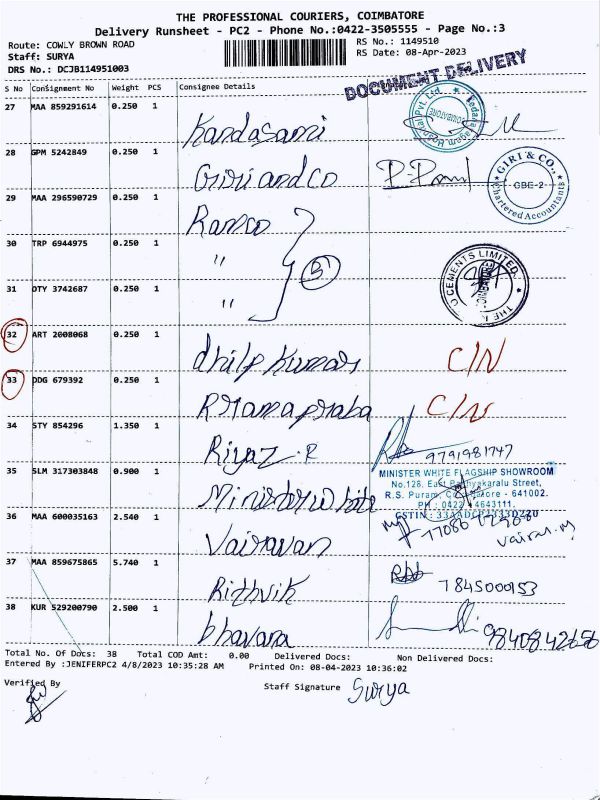 THE PROFESSIONAL COURIERS, COIMBATORE
Delivery Runsheet - PC2 - Phone No.:0422-3505555 - Page No.:3
Route: COWLY BROWN ROAD
RS No.: 1149510
Staff: SURYA
RS Date: 08-Apr-2023
DRS No.: DCJB114951003
DOCUMENT DELIVERY
S No Consignment No Weight PCS Consignee Details
27 MAA 859291614 0.250 1
Kandasami
28 GPM 5242849 0.250 1
Giri and co
GIRI & CO.,
CBE-2
Chartered Accountants
29 MAA 296590729 0.250 1
Ramco
30 TRP 6944975 0.250 1
"
31 OTY 3742687 0.250 1
"
CEMENTS LIMITED
32 ART 2008068 0.250 1
dhilp kumar C/N
33 DDG 679392 0.250 1
C/N
34 STY 854296 1.350 1
Riyaz . R 9791981747
35 SLM 317303848 0.900 1
Minister white
MINISTER WHITE FLAGSHIP SHOWROOM
No.128, East Street,
R.S. Puram, - 641002.
PH : 0422 4643111.
36 MAA 600035163 2.540 1
Vairavan
37 MAA 859675865 5.740 1
Rithvik 7845000153
38 KUR 529200790 2.500 1
bhavana
Total No. Of Docs: 38 Total COD Amt: 0.00 Delivered Docs: Non Delivered Docs:
Entered By :JENIFERPC2 4/8/2023 10:35:28 AM Printed On: 08-04-2023 10:36:02
Verified By
Staff Signature Surya